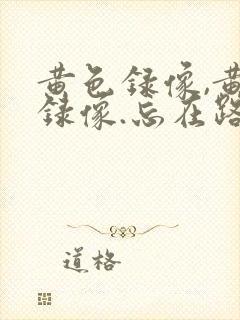 黄色录像,黄
录像.忘在路
道格